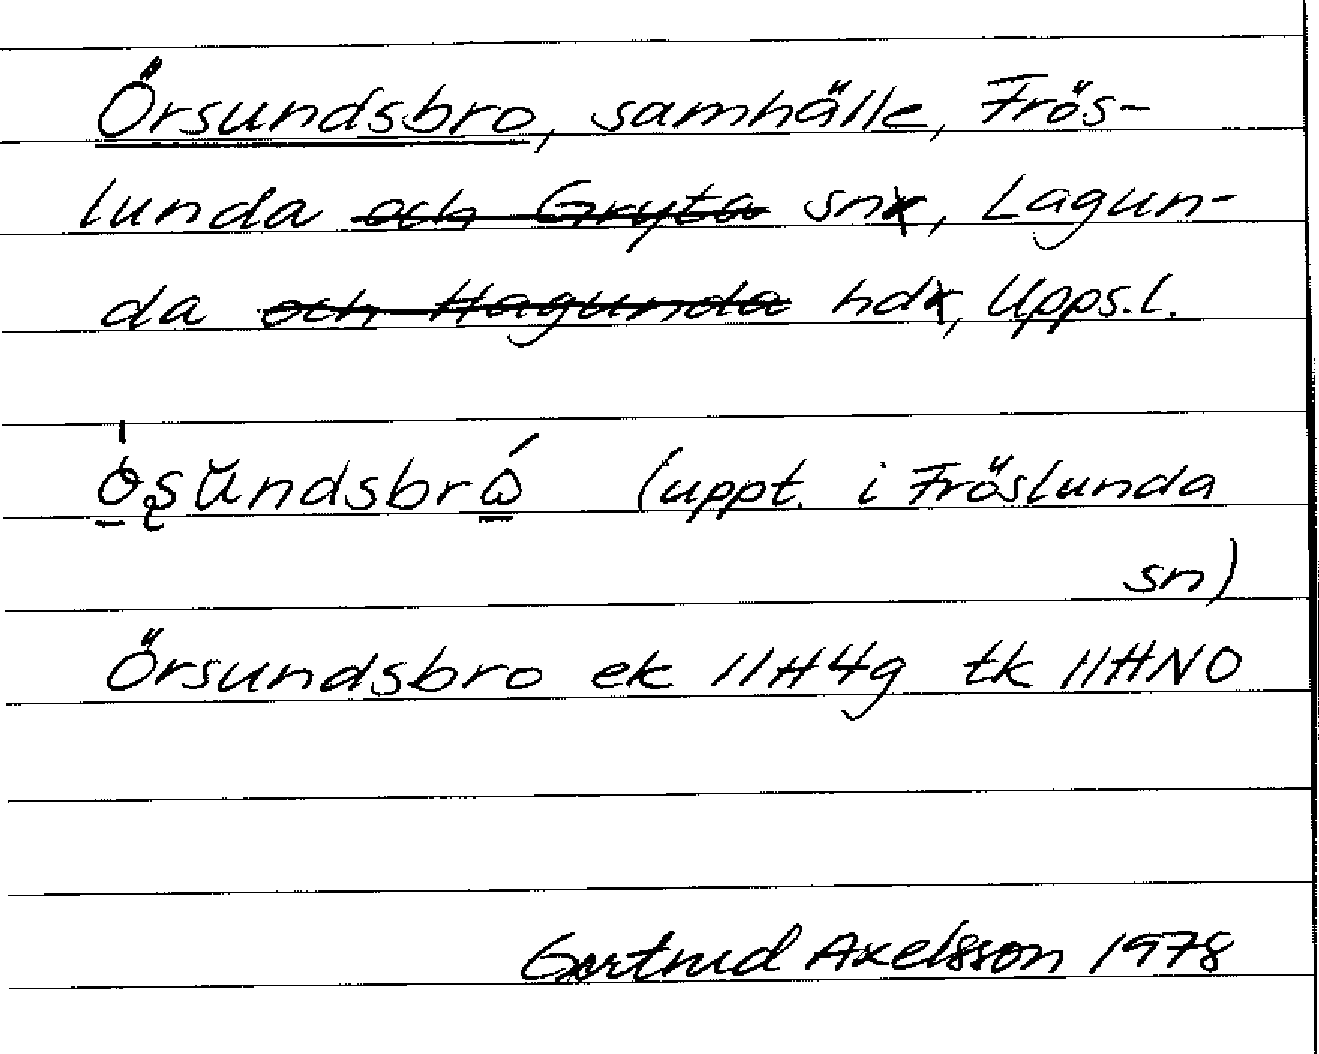 Örsundsbro, samhälle, Frös-
lunda och Gryta snr, Lagun-
da och Hagunda hdr, Upps.l.
(uppt. i Fröslunda
sn)
Örsundsbro ek 11H4g tk 11HNO
Gertrud Axelsson 1978